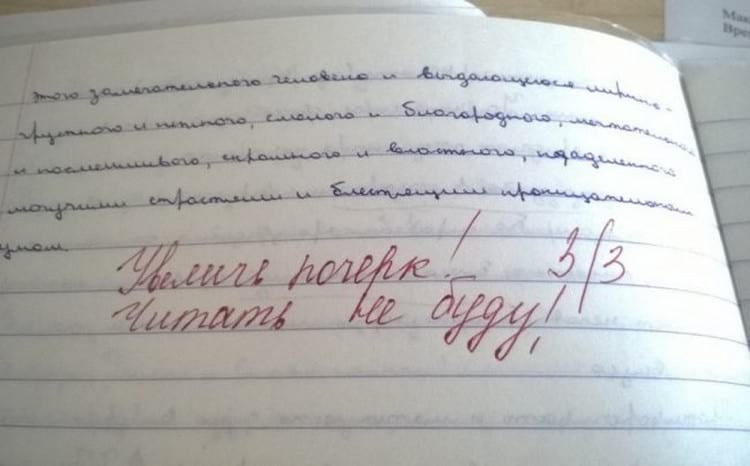 Мак
Вре
этого замечательного человека и выдающегося лирика-
грустного и нежного, смелого и благородного, мечтательного
и насмешливого, скромного и властного, наделенного
могучими страстями и блестящим проницательным
умом.
Увеличь почерк! 3/3
Читать не буду!